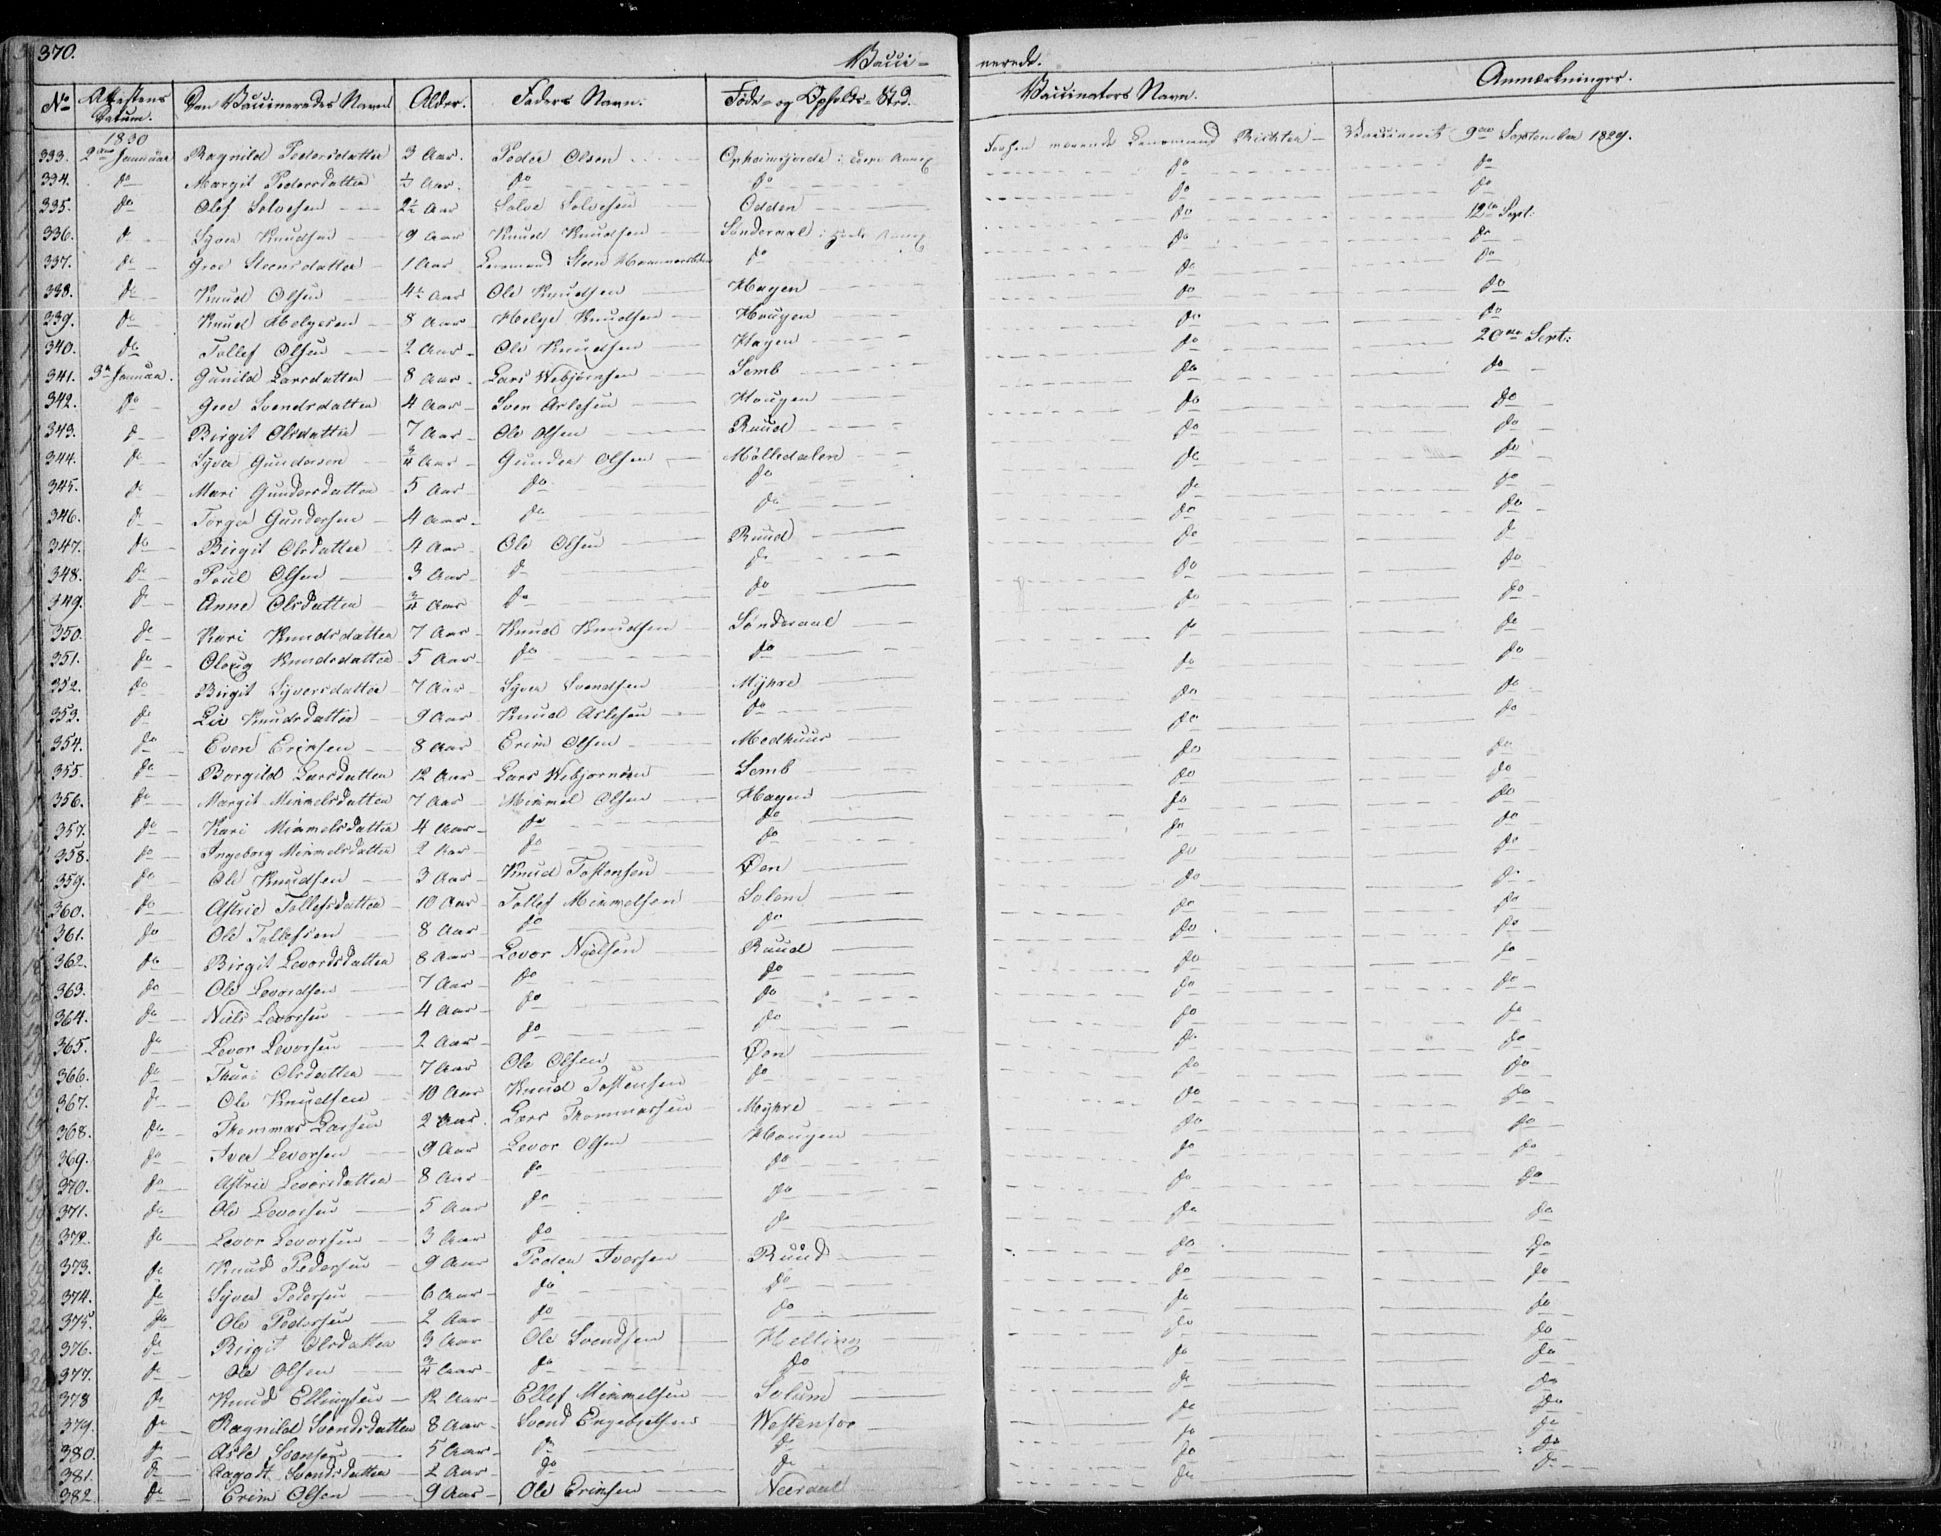 370. Vacci- nerede.
No Attestens Datum. Den Vaccineredes Navn Alder. Faders Navn. Føde- og Opholds-Sted. Vaccinators Navn. Anmærkninger.
1830
333. 2den Januar Ragnild Pedersdatter 3 Aar. Peder Olsen Vaccineret 9de September 1829.
334. do Margit Pedersdatter do do do do
335. do Olef Solvesen 2½ Aar Solve Solvesen Odden do do
336. do Syver Knudsen 9 Aar Knud Knudsen Sønderaal do 12te Sept:
337. do Groe Steensdatter 1 Aar Lensmand Steen do do do
338. do Knud Olsen 4½ Aar Ole Knudsen Hagen do do
339. do Knud Helgesen 8 Aar Helge Knudsen Hougen do do
340. do Tollef Olsen 2 Aar Ole Knudsen Hagen do 20de Sept:
341. 3die Januar. Gunild Larsdatter 8 Aar Lars Webjørnsen Semb do do
342. do Groe Svendsdatter 4 Aar Sven Aslesen Hougen do do
343. do Birgit Olsdatter 7 Aar Ole Olsen Ruud do do
344. do Syver Gundersen ¾ Aar Gunder Olsen Mølledalen do do
345. do Mari Gundersdatter 5 Aar do do do do
346. do Torger Gundersen 4 Aar do do do do
347. do Birgit Olsdatter 4 Aar Ole Olsen Ruud do do
348. do Poul Olsen 3 Aar do do do do
349. do Anne Olsdatter ¾ Aar do do do do
350. do Kari Knudsdatter 7 Aar Knud Knudsen Sønderaal do do
351. do Oloug Knudsdatter 5 Aar do do do do
352. do Birgit Syversdatter 7 Aar Syver Svendsen Myhre do do
353. do Liv Knudsdatter 9 Aar Knud Aslesen do do do
354. do Even Erimsen 8 Aar Erim Olsen Medhuus do do
355. do Borgild Larsdatter 12 Aar Lars Webjørnsen Semb do do
356. do Margit Mimmelsdatter 7 Aar Mimmel Olsen Hagen do do
357. do Kari Mimmelsdatter 4 Aar do do do do
358. do Ingeborg Mimmelsdatter 2 Aar do do do do
359. do Ole Knudsen 3 Aar Knud Tostensen Øen do do
360. do Astrie Tollefsdatter 10 Aar Tollef Mimmelsen Solem do do
361. do Ole Tollefsen 8 Aar do do do do
362. do Birgit Levordsdatter 8 Aar Levor Nielsen Ruud do do
363. do Ole Levordsen 7 Aar do do do do
364. do Niels Levorsen 4 Aar do do do do
365. do Levor Levorsen 2 Aar do do do do
366. do Thuri Olsdatter 7 Aar Ole Olsen Øen do do
367. do Ole Knudsen 10 Aar Knud Tostensen do do do
368. do Thommas Larsen 2 Aar Lars Thommassen Myhre do do
369. do Iver Levorsen 9 Aar Levor Olsen Hougen do do
370. do Astrie Levorsdatter 8 Aar do do do do
371. do Ole Levorsen 5 Aar do do do do
372. do Levor Levorsen 3 Aar do do do do
373. do Knud Pedersen 9 Aar Peder Iversen Ruud do do
374. do Syver Pedersen 6 Aar do do do do
375. do Ole Pedersen 2 Aar do do do do
376. do Birgit Olsdatter 3 Aar Ole Svendsen Helling do do
377. do Ole Olsen ¾ Aar do do do do
378 do Knud Ellingsen 12 Aar Ellef Mimmelsen Solum do do
379. do Ragnild Svendsdatter 8 Aar Svend Engebretsen do do
380. do Asle Svensen 5 Aar do do do do
381. do Aagodt Svendsdatter 2 Aar do do do do
382 do Erim Olsen 9 Aar Ole Erimsen Neeraal